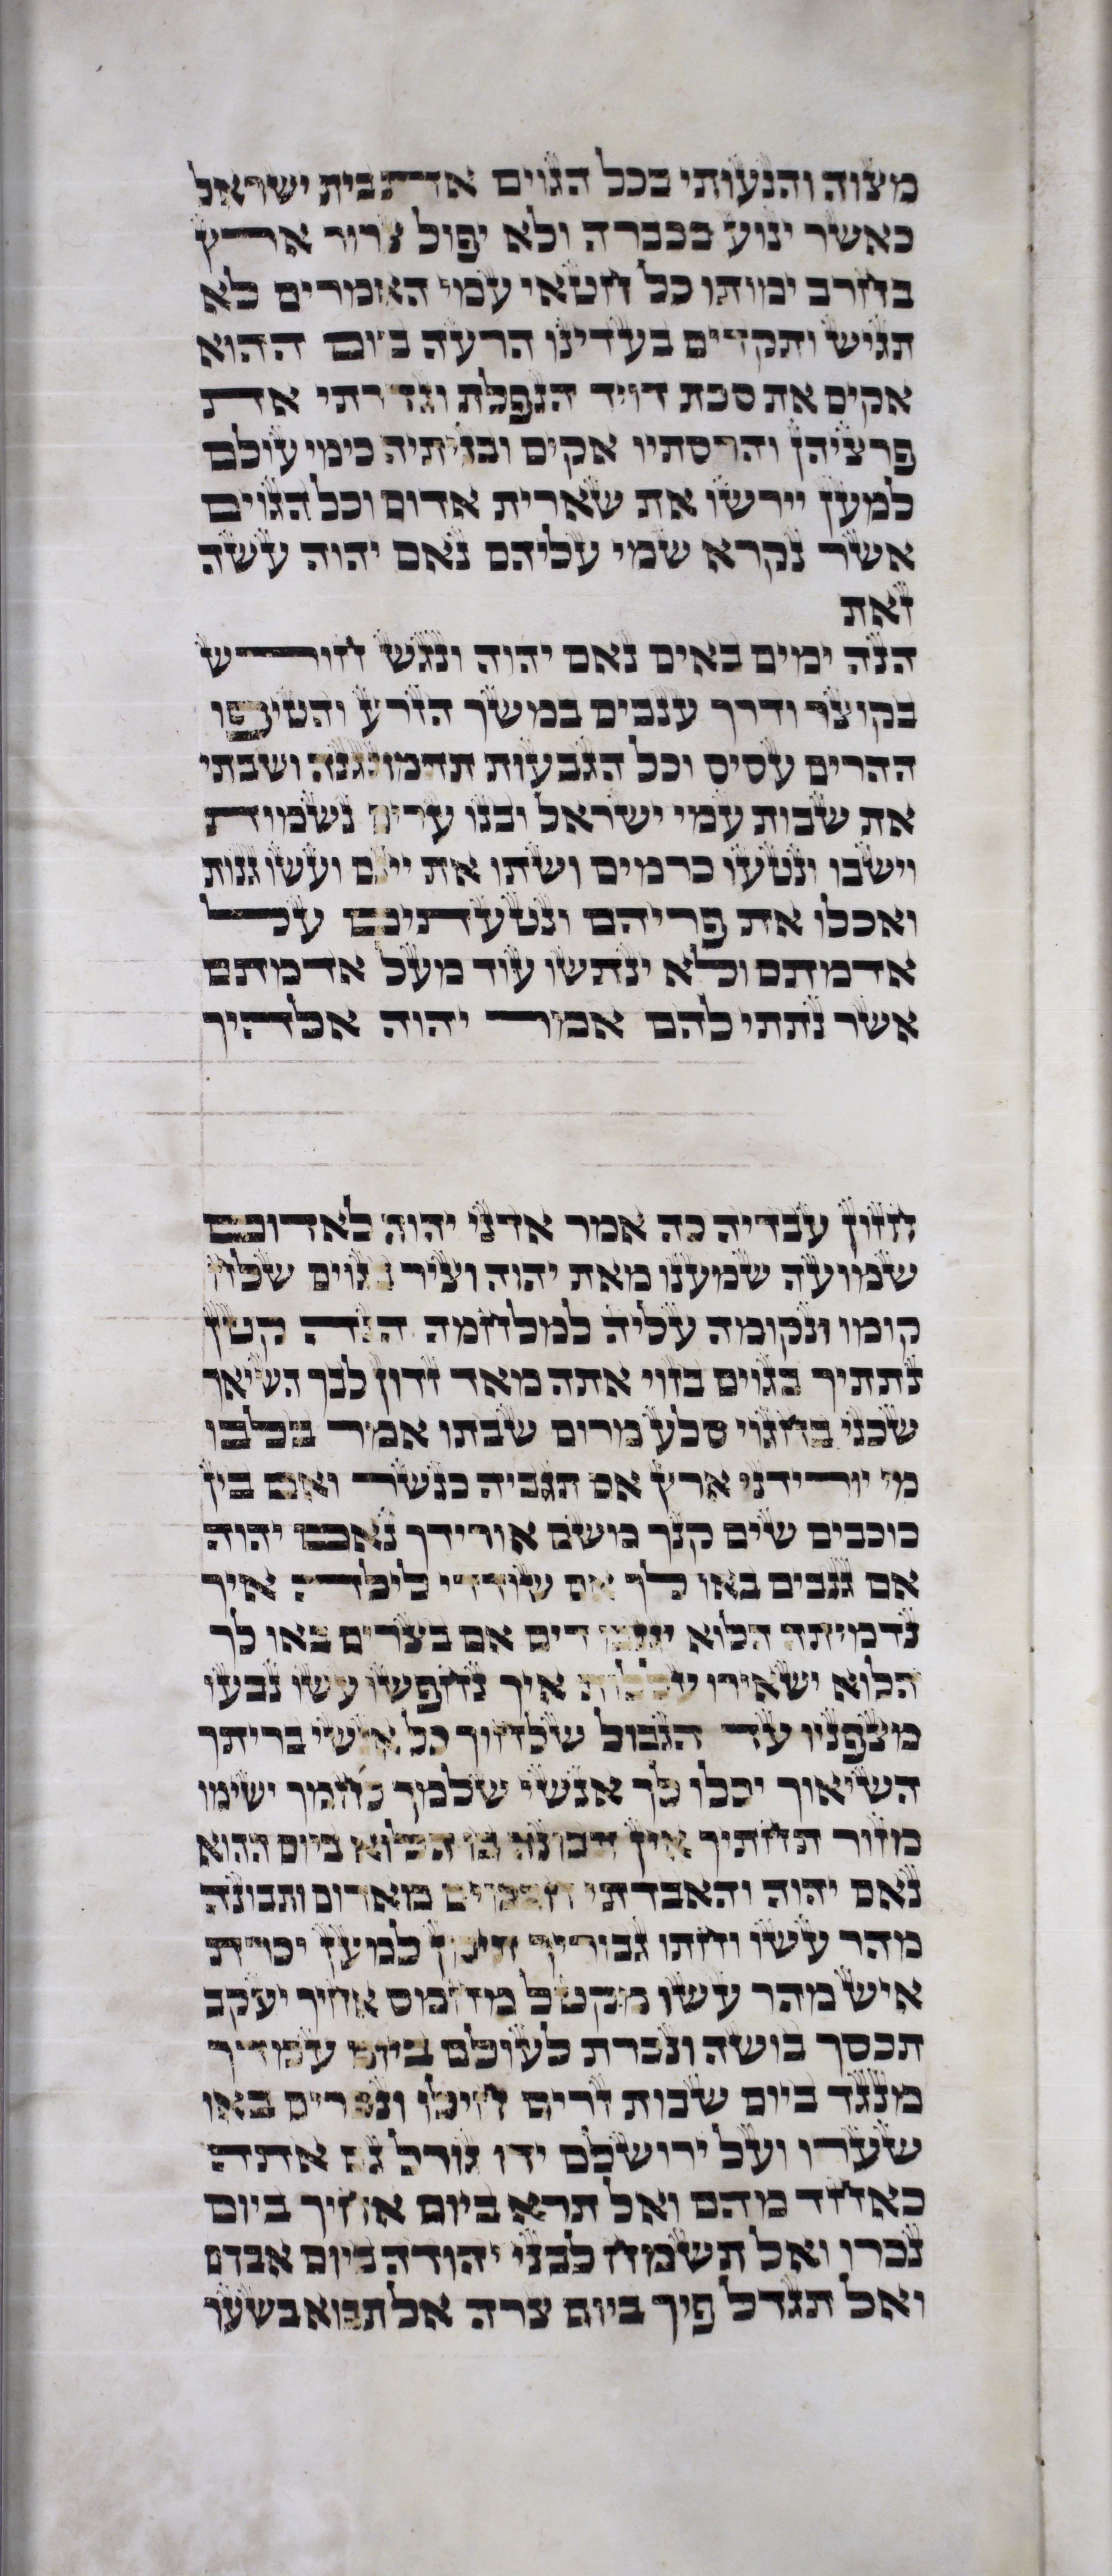 מצוה והנעותי בכל הגוים את בית ישראל
כאשר ינוע בכברה ולא יפול צרור ארץ
בחרב ימותו כל חטאי עמי האמרים לא
תגיש ותקדים בעדינו הרעה ביום ההוא
אקים את סכת דויד הנפלת וגדרתי את
פרציהן והרסתיו אקים ובניתיה כימי עולם
למען יירשו את שארית אדום וכל הגוים
אשר נקרא שמי עליהם נאם יהוה עשה
זאת
הנה ימים באים נאם יהוה ונגש חורש
בקוצר ודרך ענבים במשך הזרע והטיפו
ההרים עסיס וכל הגבעות תתמוגגנה ושבתי
את שבות עמי ישראל ובנו ערים נשמות
וישבו ונטעו כרמים ושתו את יינם ועשו גנות
ואכלו את פריהם ונטעתים על
אדמתם ולא ינתשו עוד מעל אדמתם
אשר נתתי להם אמר יהוה אלהיך
חזון עבדיה כה אמר אדני יהוה לאדום
שמועה שמענו מאת יהוה וציר בגוים שלח
קומו ונקומה עליה למלחמה הנה קטן
נתתיך בגוים בזוי אתה מאד זדון לבך השיאך
שכני בחגוי סלע מרום שבתו אמר בלבו
מי יורידני ארץ אם תגביה כנשר ואם בין
כוכבים שים קנך משם אורידך נאם יהוה
אם גנבים באו לך אם שודדי לילה איך
נדמיתה הלוא יגנבו דים אם בצרים באו לך
הלוא ישאירו עללות איך נחפשו עשו נבעו
מצפניו עד הגבול שלחוך כל אנשי בריתך
השיאוך יכלו לך אנשי שלמך לחמך ישימו
מזור תחתיך אין תבונה בו הלוא ביום ההוא
נאם יהוה והאבדתי חכמים מאדום ותבונה
מהר עשו וחתו גבוריך תימן למען יכרת
איש מהר עשו מקטל מחמס אחיך יעקב
תכסך בושה ונכרת לעולם ביום עמדך
מנגד ביום שבות זרים חילו ונכרים באו
שערו ועל ירושלם ידו גורל גם אתה
כאחד מהם ואל תרא ביום אחיך ביום
נכרו ואל תשמח לבני יהודה ביום אבדם
ואל תגדל פיך ביום צרה אל תבוא בשער